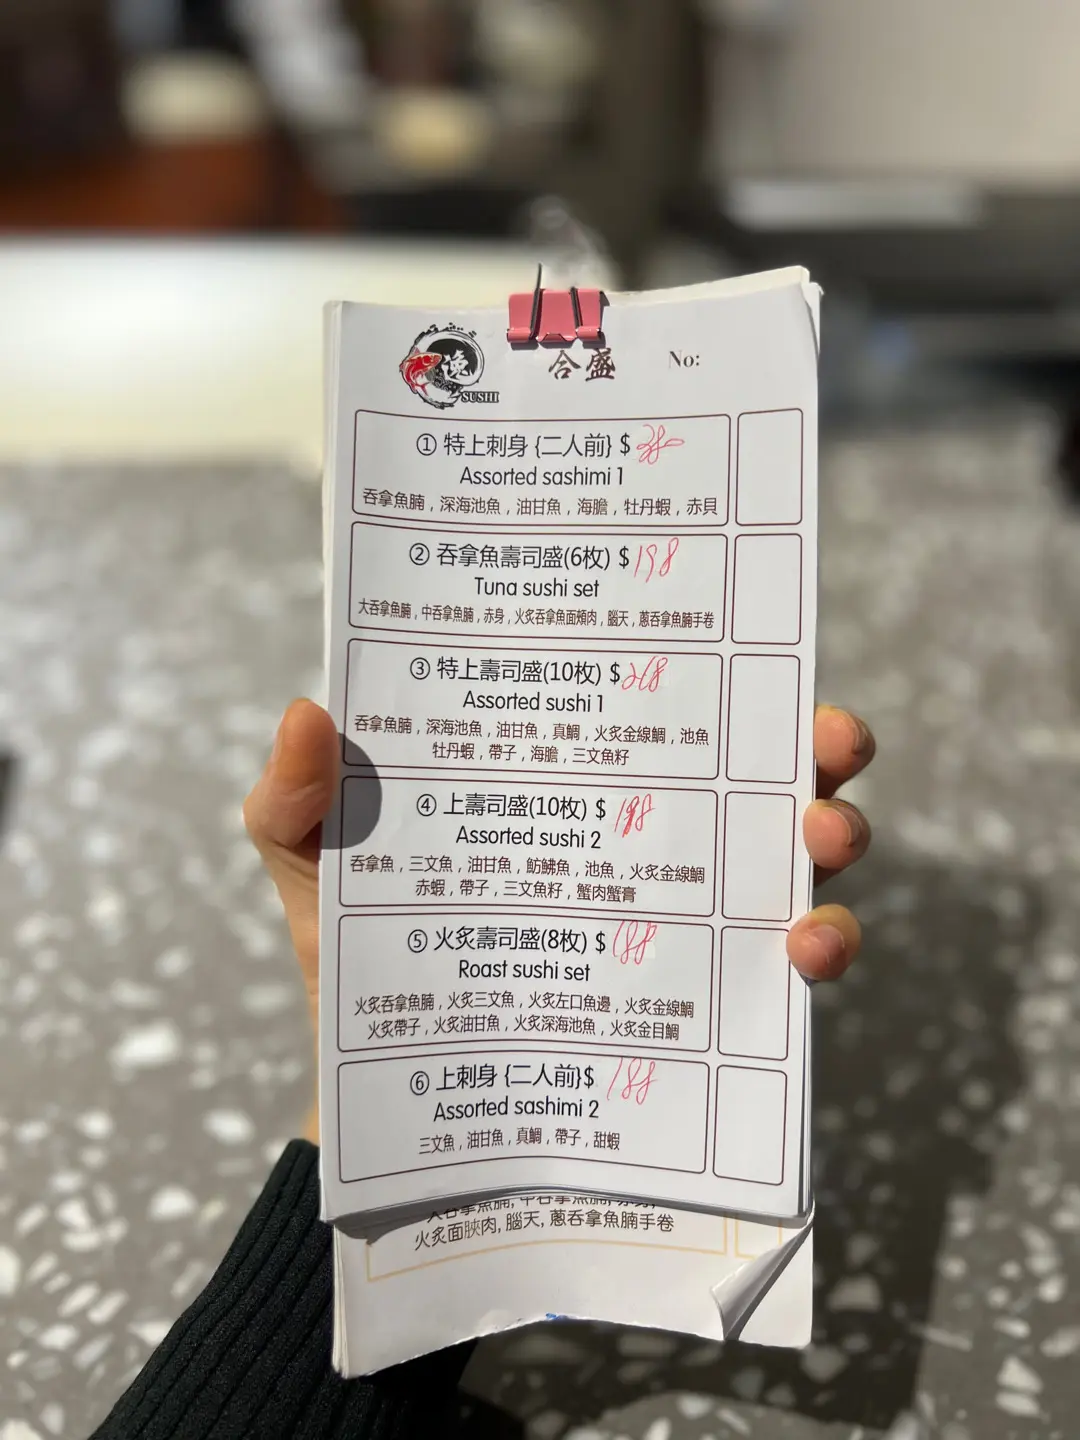 漁
SUSHI
合盛
No:
① 特上刺身 {二人前} $ 380
Assorted sashimi 1
吞拿魚腩 , 深海池魚 , 油甘魚 , 海膽 , 牡丹蝦 , 赤貝
② 吞拿魚壽司盛(6枚) $ 198
Tuna sushi set
大吞拿魚腩 , 中吞拿魚腩 , 赤身 , 火炙吞拿魚面頰肉 , 腦天 , 蔥吞拿魚腩手卷
③ 特上壽司盛(10枚) $ 268
Assorted sushi 1
吞拿魚腩 , 深海池魚 , 油甘魚 , 真鯛 , 火炙金線鯛 , 池魚
牡丹蝦 , 帶子 , 海膽 , 三文魚籽
④ 上壽司盛(10枚) $ 198
Assorted sushi 2
吞拿魚 , 三文魚 , 油甘魚 , 魴鮄魚 , 池魚 , 火炙金線鯛
赤蝦 , 帶子 , 三文魚籽 , 蟹肉蟹膏
⑤ 火炙壽司盛(8枚) $ 188
Roast sushi set
火炙吞拿魚腩 , 火炙三文魚 , 火炙左口魚邊 , 火炙金線鯛
火炙帶子 , 火炙油甘魚 , 火炙深海池魚 , 火炙金目鯛
⑥ 上刺身 {二人前}$ 188
Assorted sashimi 2
三文魚 , 油甘魚 , 真鯛 , 帶子 , 甜蝦
火炙面脥肉, 腦天, 蔥吞拿魚腩手卷